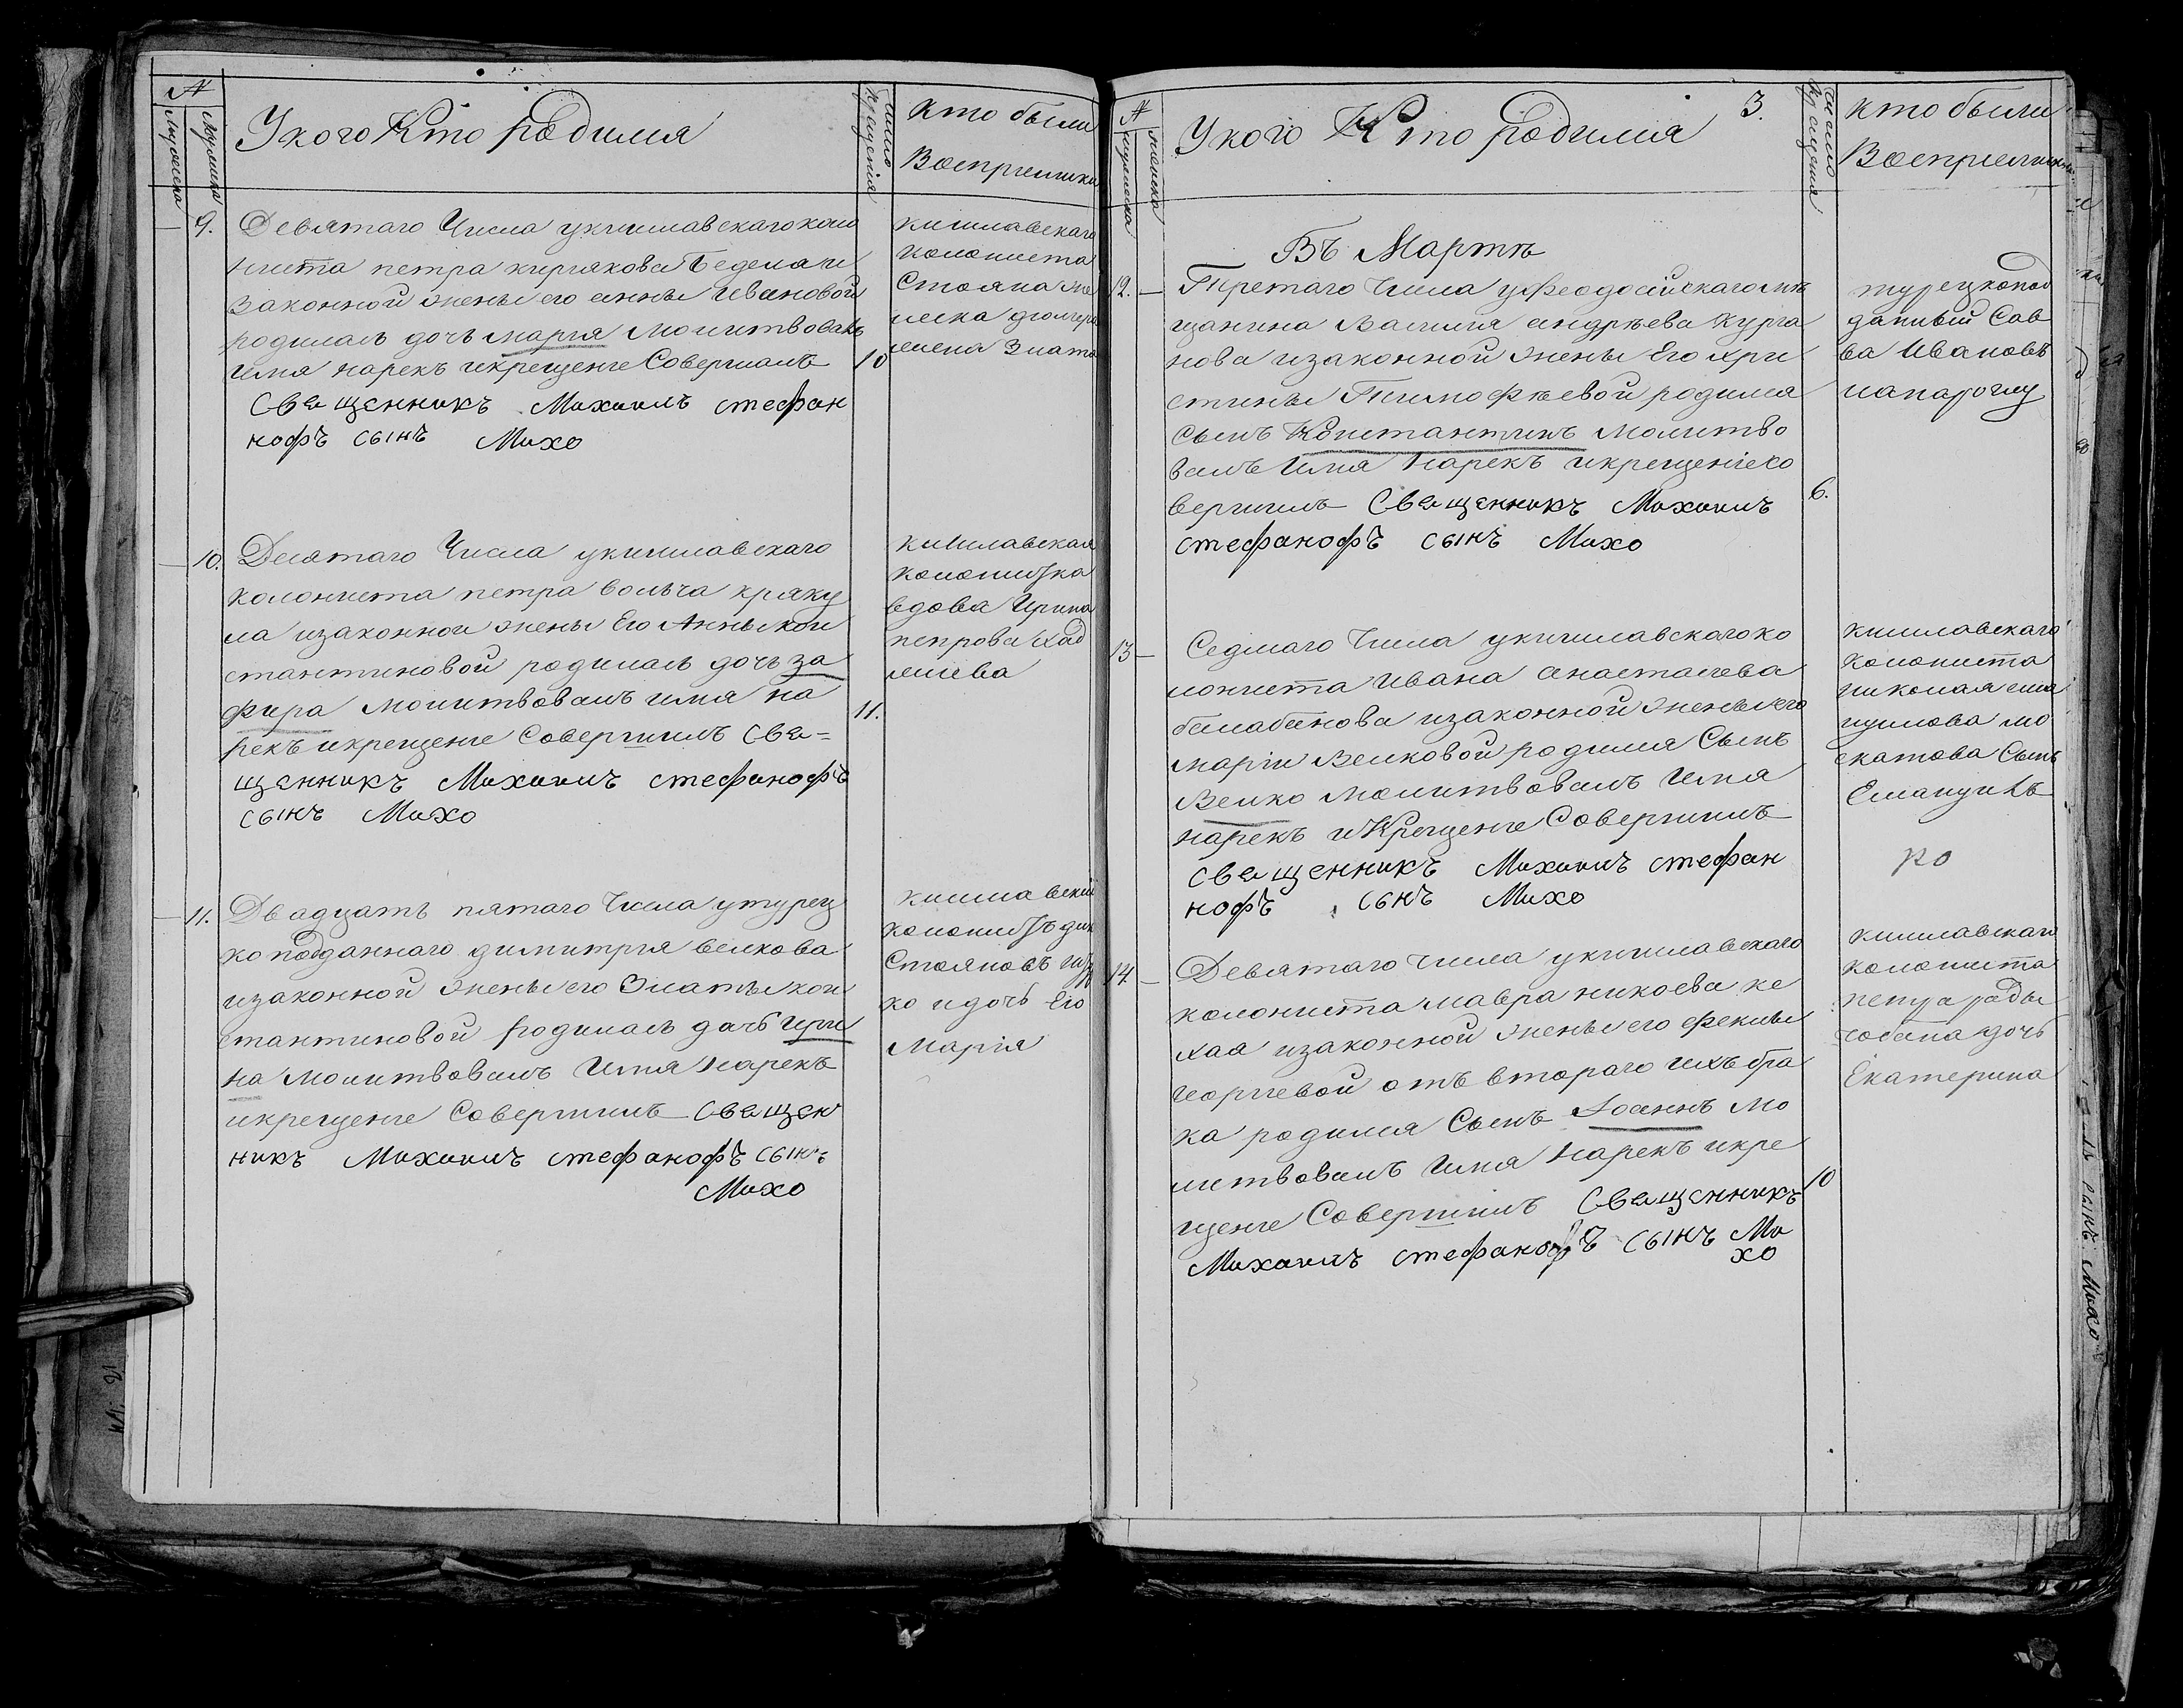 №
Мужеска
Женска
У кого Кто родился
число крещения
Кто были
Восприемники
9.
Девятаго Числа у кишлавскаго коло
ниста петра кирiякова Беделаки
Законной жены его анны Ивановой
родилась дочь марiя Молитвовалъ
имя нарекъ и крещенiе Совершалъ
Священникъ Михаилъ стефан
нофъ сынъ Михо
10
кишлавскаго
колониста
Стояна
злата
10.
Десятаго Числа у кишлавскаго
колониста петра волъча кражу
ла изаконной жены Его Анны кон
стантиновой родилась дочь за
фира молитвовалъ имя на
рекъ и крещенiе Совершилъ Свя=
щенникъ Михаилъ стефанофъ
сынъ Михо
11.
Кишлавская
колонистка
вдова Ирина
петрова
11.
Двадцать пятаго Числа у турец
ко подданнаго димитрiя велкова
изаконной жены его Златы кон
стантиновой родилась дочь Ири
на Молитвовалъ Имя Нарекъ
и крещенiе Совершилъ Священ
никъ Михаилъ стефанофъ сынъ
Михо
кишлавскiй
колонистъ
Стояновъ
ко и дочь Его
Марiя
№
Мужеска
Женска
У кого Кто родился
3.
число крещения
Кто были
Восприемники
Въ Мартѣ
12.
Третаго Числа у Феодосiйскаго мѣ
щанина Василiя андрѣева Курга
нова изаконной жены Его хри
стины Тимофѣевой родился
Сынъ Константинъ молитво
валъ Имя Нарекъ и крещенiе со
вершилъ Священникъ Михаилъ
стефанофъ сынъ Михо
6.
турецкопод
данный Сав
ва Ивановъ
папароглу
13
Седмаго Числа у кишлавскаго ко
лониста Ивана анастасева
балабанова изаконной жены его
марiи Велковой родился Сынъ
Велко молитвовалъ Имя
нарекъ и Крещенiе Совершилъ
священникъ Михаилъ стефан
нофъ сынъ Михо
Кишлавскаго
колониста
николая
Сынъ
Емануилъ
14
Девятаго числа у кишлавскаго
колониста мавра никоева ке
хая изаконной жены его феклы
георгiевой отъ втораго ихъ бра
ка родился Сынъ Iоаннъ Мо
литвовалъ Имя Нарекъ и кре
щенiе Совершилъ Священникъ
Михаилъ стефанофъ сынъ Ми
хо
10
Кишлавскаго
колониста
пенча рады
чобана дочь
Екатерина